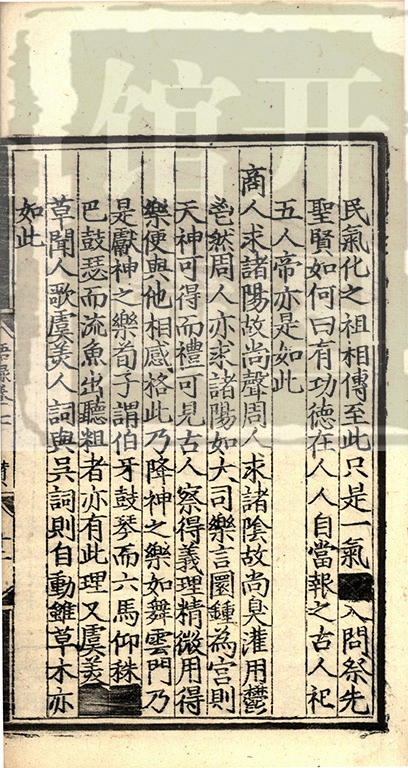 民氣化之祖相傳至此只是一氣 又問祭先
聖賢如何曰有功德在人人自當報之古人祀
五人帝亦是如此
商人求諸陽故尚聲周人求諸陰故尚臭灌用鬱
鬯然周人亦求諸陽如大司樂言圜鍾為宮則
天神可得而禮可見古人察得義理精微用得
樂便與他相感格此乃降神之樂如舞雲門乃
是獻神之樂荀子謂伯牙鼓琴而六馬仰秣
巴鼓瑟而流魚出聽粗者亦有此理又虞美
草聞人歌虞美人詞與吳詞則自動雖草木亦
如此
語録卷十
开馆